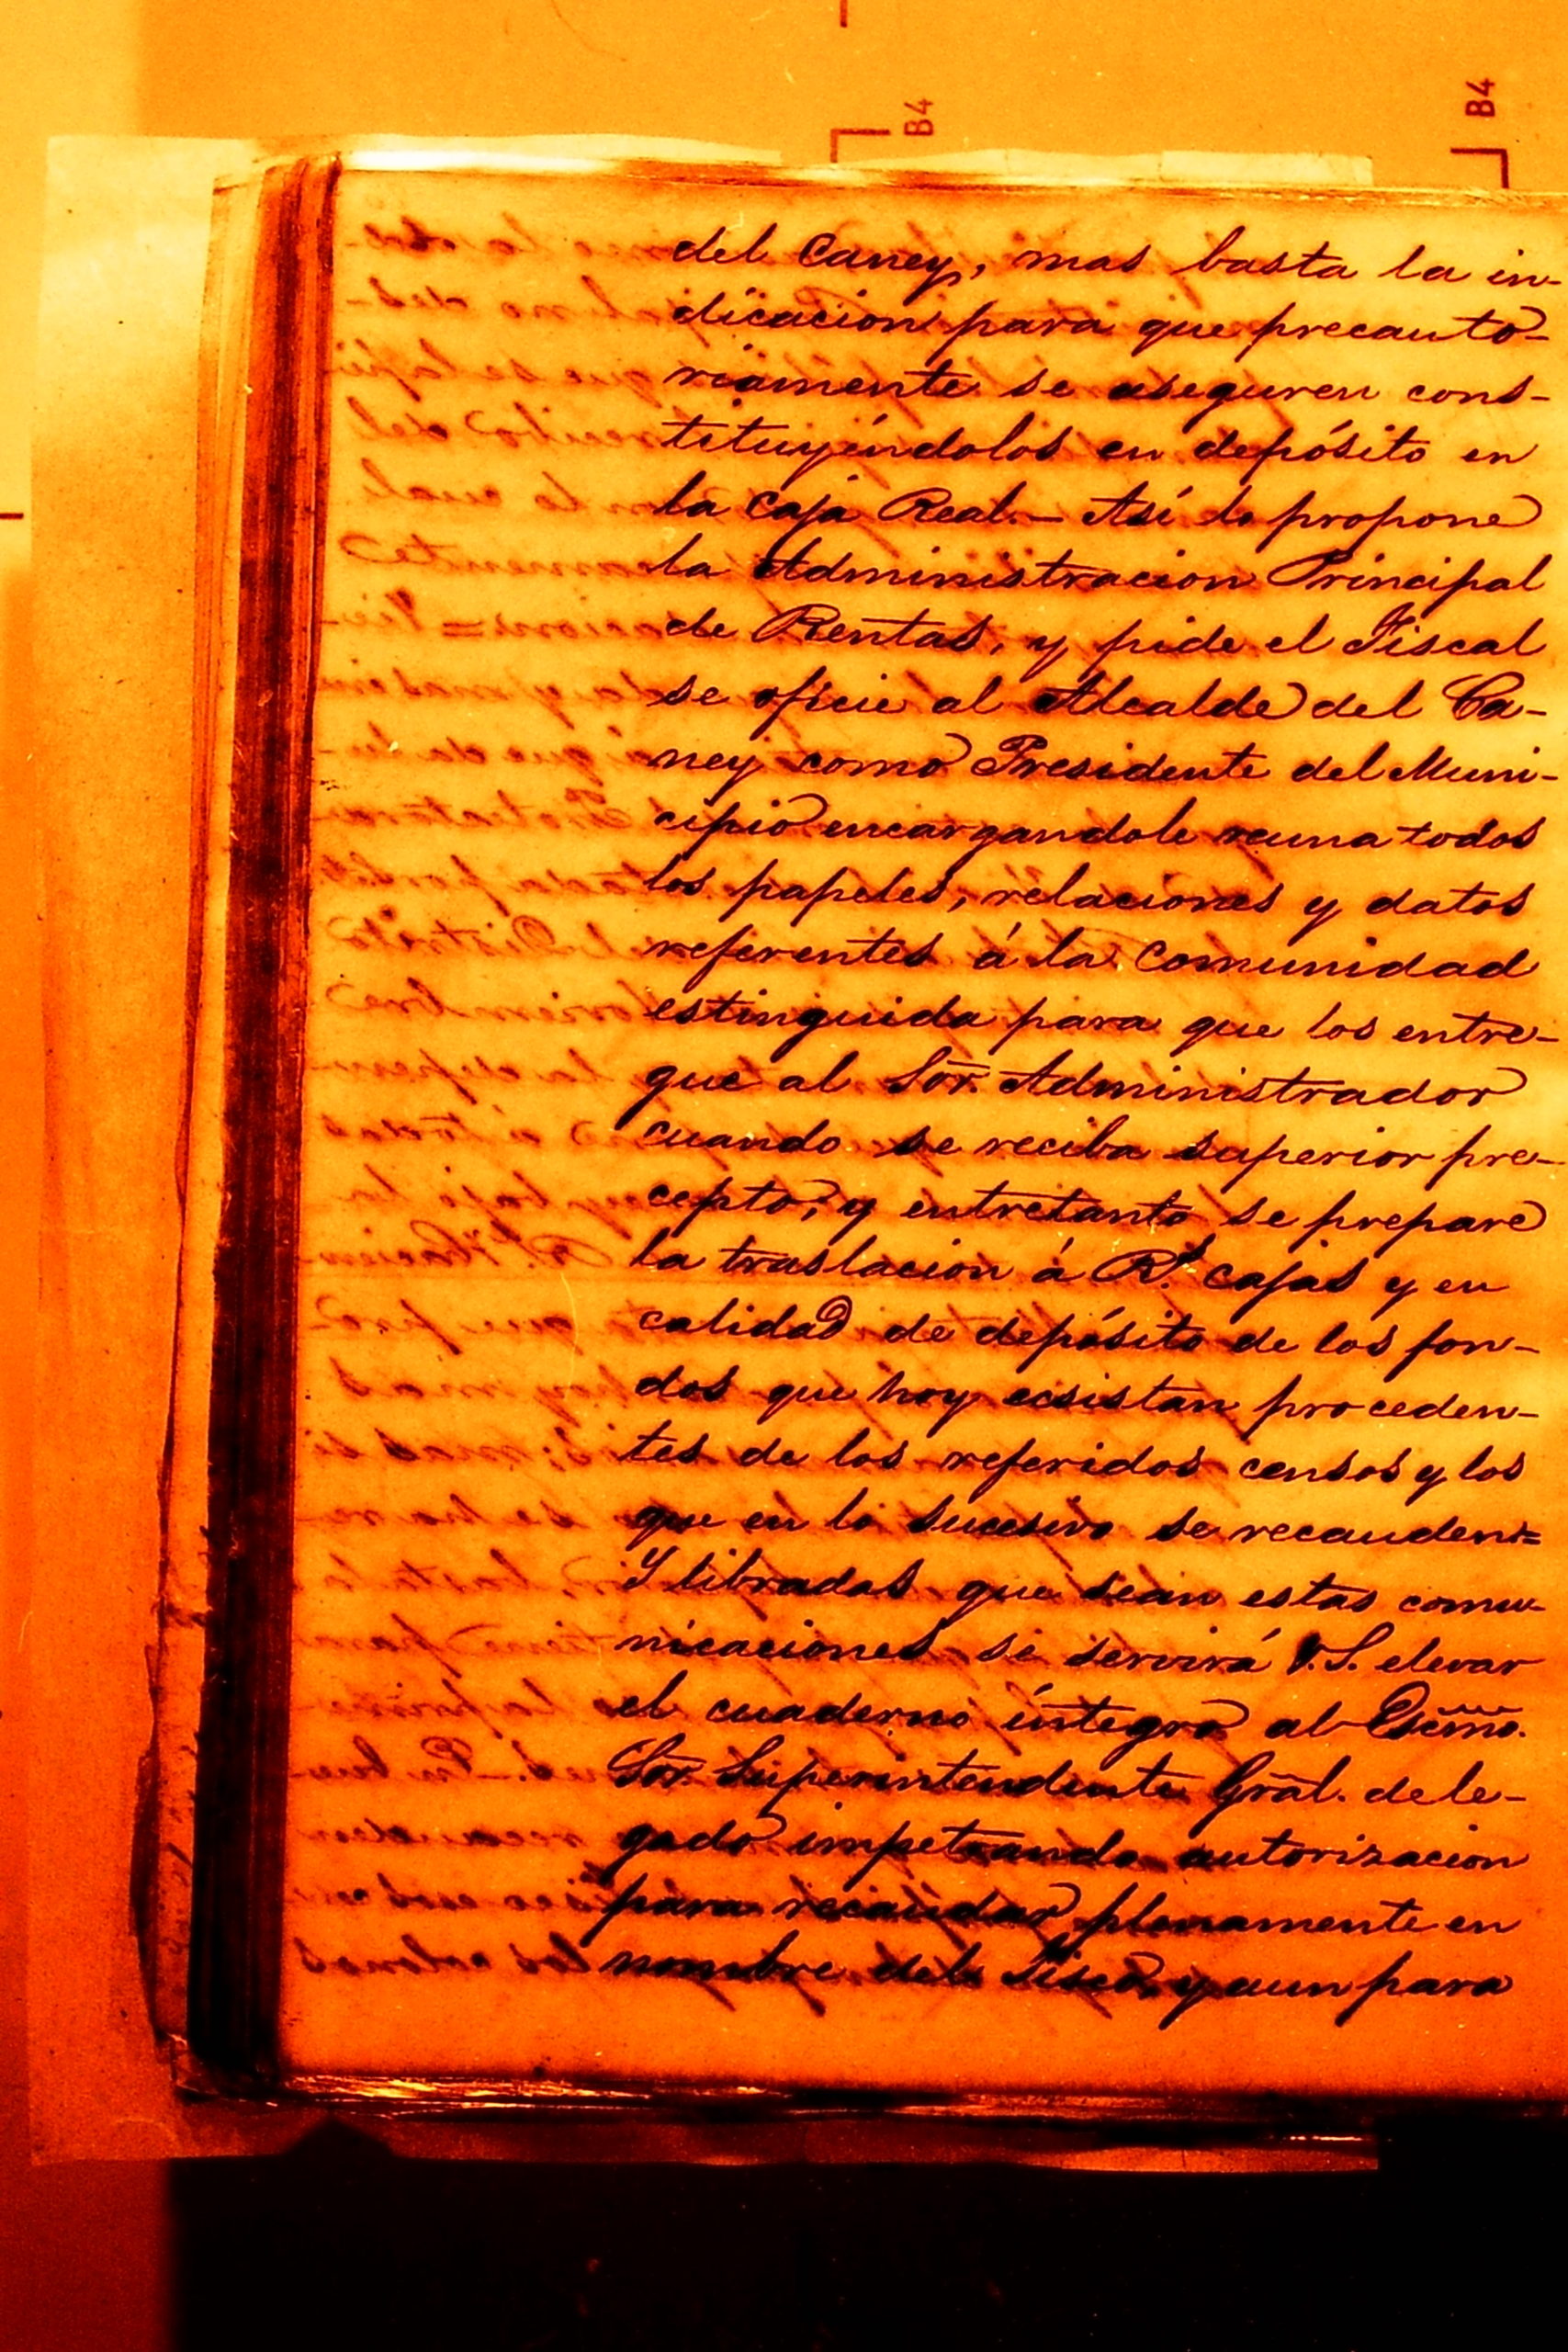 B4
B4
del Caney, mas basta la in-
dicacion para que precauto-
riamente se aseguren cons-
tituyéndolos en depósito en
la caja Real.- Así lo propone
la Administracion Principal
de Rentas, y pide el Fiscal
se oficie al Alcalde del Ca-
ney como Presidente del Muni-
cipio encargandole reuna todos
los papeles, relaciones y datos
referentes á la comunidad
estinguida para que los entre-
gue al Sor. Administrador
cuando se reciba superior pre-
cepto; y entretanto se prepare
la traslacion á Rs. cajas y en
calidad de depósito de los fon-
dos que hoy ecsistan proceden-
tes de los referidos censos y los
que en lo sucesivo se recauden=
Y libradas que sean estas comu-
nicaciones se servirá V.S. elevar
el cuaderno íntegro al Escmo.
Sor. Superintendente Gral. dele-
gado impetrando autorizacion
para recaudar plenamente en
nombre del Fisco, y aun para